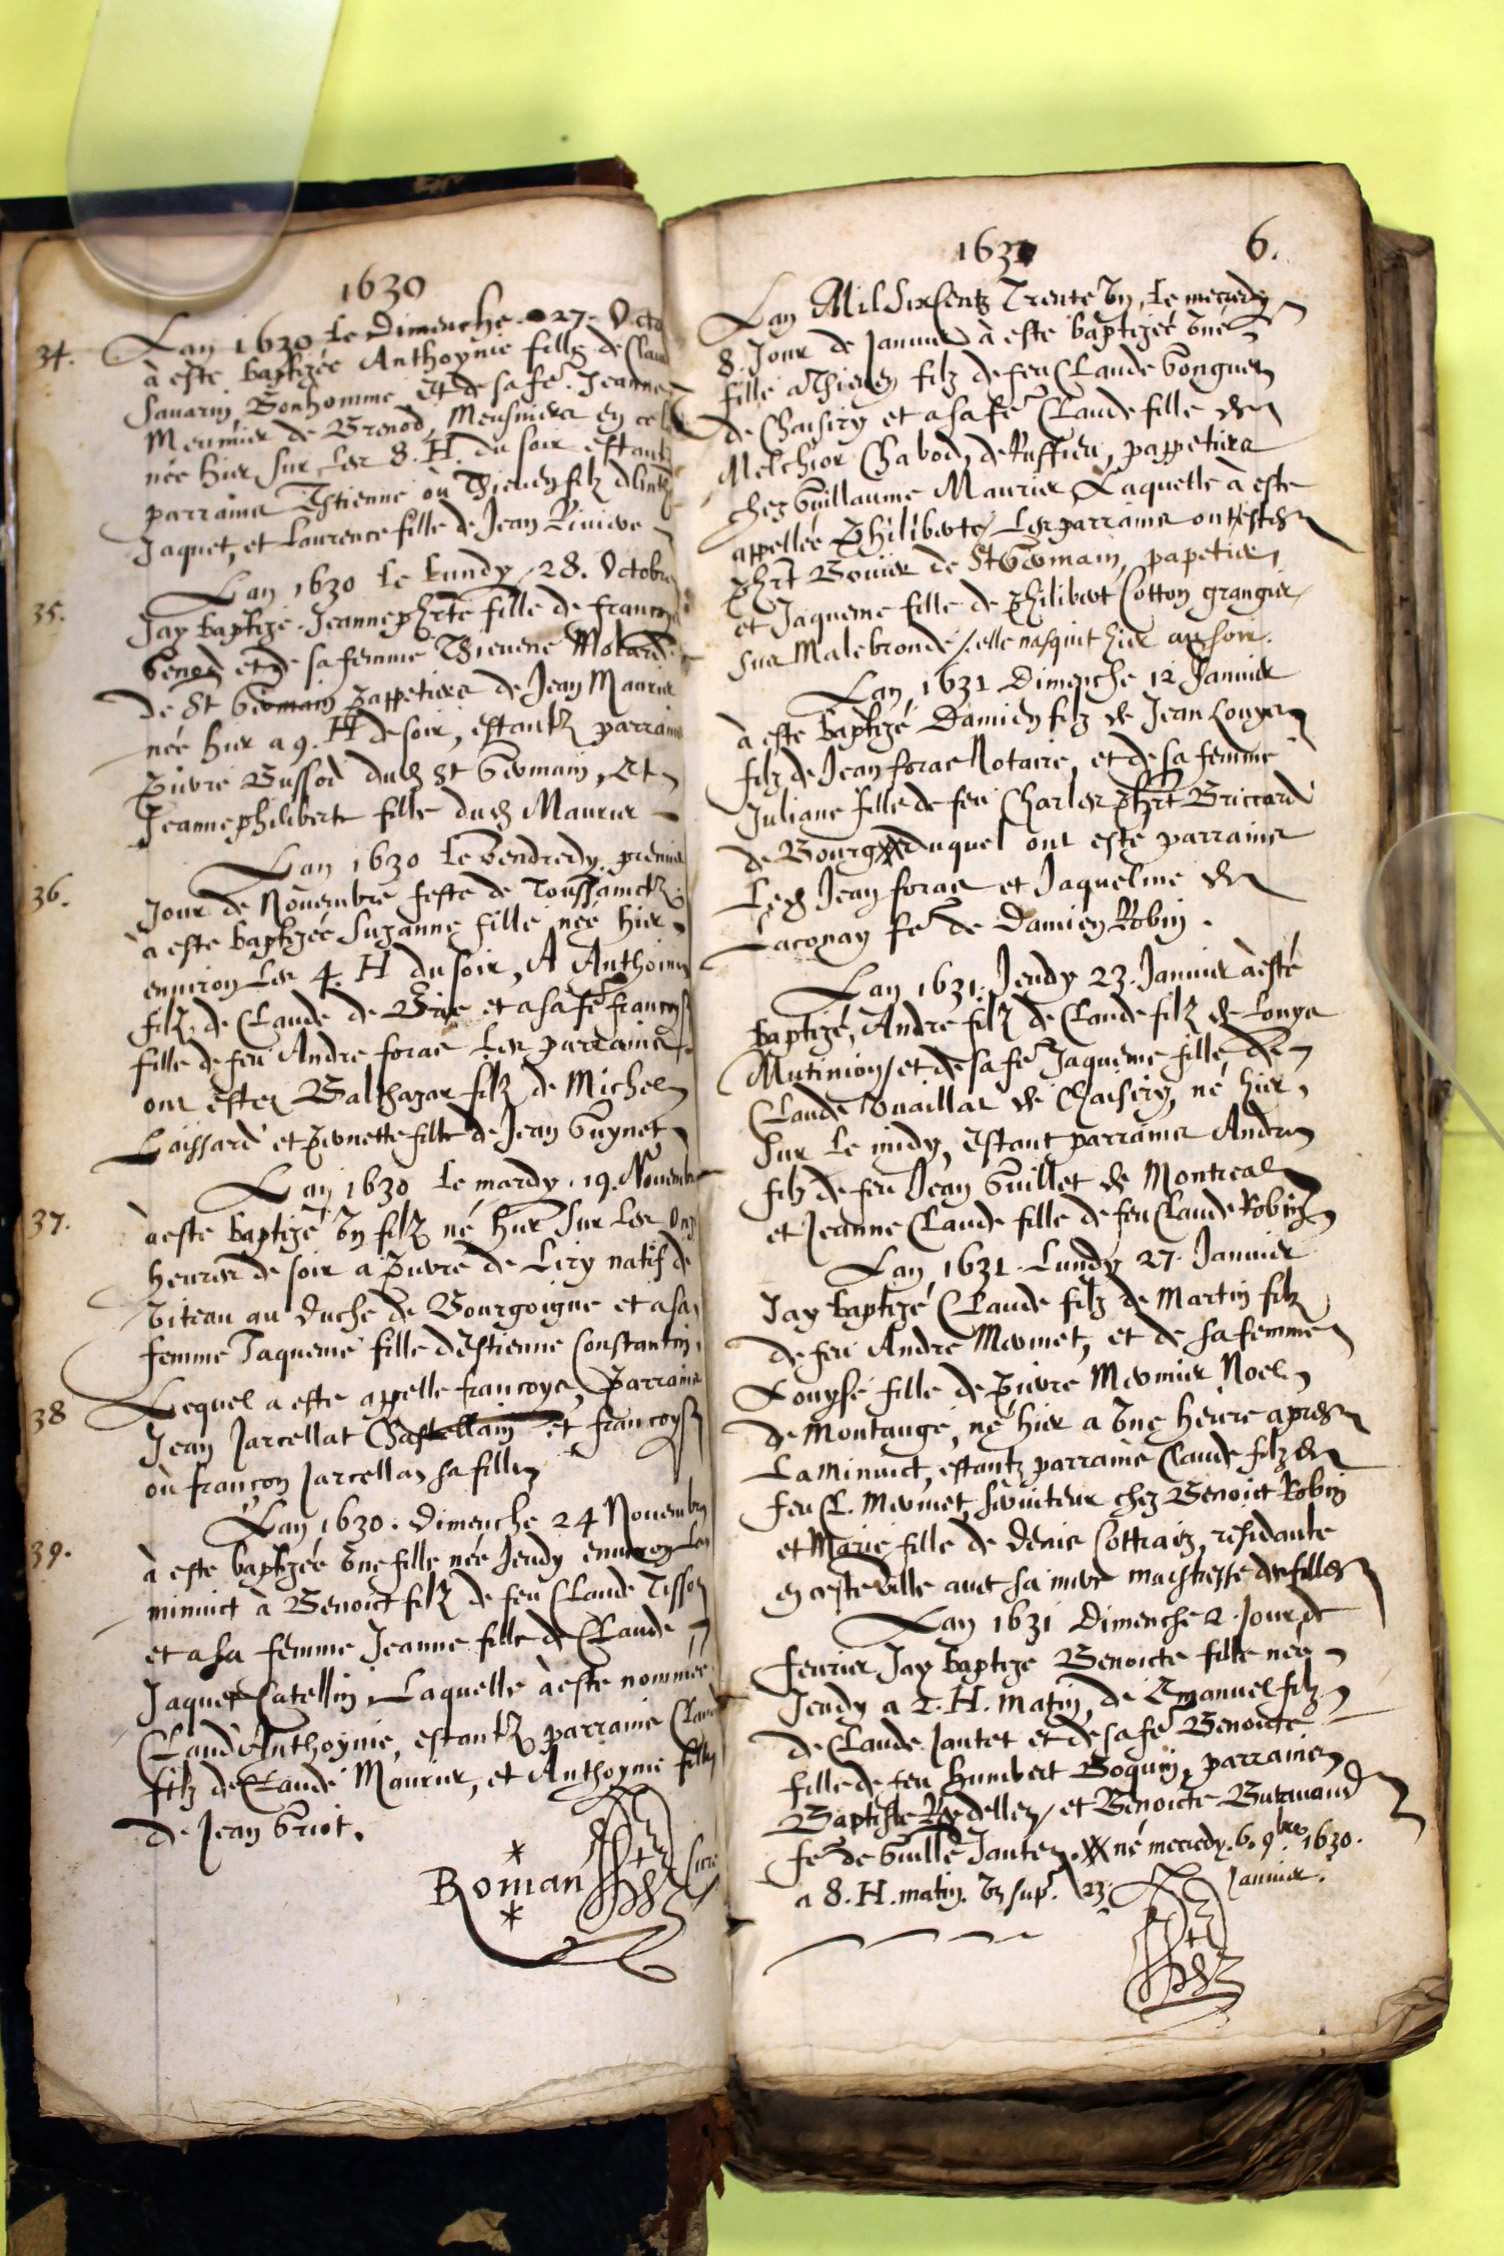 1630
34. Lan 1630 le Dimenche 27. Octo
à este baptizée Anthoynie fille de Clau
Sauarin Bonhomme et de sa fe. Jeanne
Meunier de Brenod, Meusniers en ce
née hier sur les 8. H. du soir estant
parrains Estienne ou Thieuen filz
Jaquet, et Laurence fille de Jean Riuiere
35. Lan 1630 le Lundy 28. Octobre
Jay baptizé Jeannephrte fille de Francoy
Genod et de sa femme Thieuene Molard
de St Germain pappetiers de Jean Maurier
née hier a 9. H de soir, estantz parrains
Pierre Bussod dud St Germain, Et
Jeannephiliberte fille dud Maurier
36. Lan 1630 le Vendredy premier
Jour de Nouembre feste de Toussainctz
à este baptizée Suzanne fille née hier
enuiron les 4. H du soir, A Anthoine
filz de Claude de Brie et a sa fe francoyse
fille de feu Andre foras Les parrains
ont estez Balthazar filz de Michel
Laissard et Pernette fille de Jean Guynet
37. Lan 1630 le mardy 19. Nouembre
à este baptizé Vn filz né hier sur les Onz
heures de soir a Pierre de Liry natif de
Viteau au Duche de Bourgoigne et a sa
femme Jaqueme fille dEstienne Constantin
38 Lequel a este appelle francoys, Parrains
Jean Jarcellat Chastellain et francoyse
où françon Jarcellas sa fille
39. Lan 1630. Dimenche 24 Nouembre
à este baptizée Vne fille née Jeudy enuiron la
minuict à Benoict filz de feu Claude Tissot
et a sa femme Jeanne fille de Claude
Jaques Catellin, Laquelle à este nommée
Claud'Anthoynie, estantz parrains Claude
filz de Claude Maurier, et Anthoynie fille
de Jean Griot.
* Roman * Curé
1631 6.
Lan Mil Sixcentz Trente Vn, le mecredy
8. Jour de Januier à este baptizée Vne
fille a Thieuen filz de feu Claude Gonguet
de Chaisiry et a sa fe Claude fille de
Melchior Chabod, de Ruffieu, pappetiers
chez Guillaume Maurier Laquelle à este
appellée Philiberte, Les parrains ont estes
Phrt Bouuier de St Germain, papetier,
et Jaqueme fille de Philibert Cotton grangier
sur Malebronde, elle nasquit hier au soir.
Lan 1631 Dimenche 12 Januier
à este baptizé Damien filz de Jean Louys
filz de Jean foras Notaire, et de sa femme
Juliane fille de feu Charles Phrt Briccard
de Bourg duquel ont esté parrains
Led Jean foras et Jaqueline de
Laconay fe de Damien Robin.
Lan 1631. Jeudy 23. Januier à esté
baptizé, Andre filz de Claude filz de Louys
Mutinion, et de sa fe Jaqueme fille de
Claude Ouaillat de Chaisiry, né hier
sur le midy, Estant parrains Andre
filz de feu Jean Guillet de Montreal
et Jeanne Claude fille de feu Claude Robin
Lan 1631. Lundy 27. Januier
Jay baptizé Claude filz de Martin filz
de feu Andre Mermet, et de sa femme
Louyse fille de Pierre Mermier Noel
de Montange, né hier a Vne heure apres
La Minuict, estantz parrains Claude filz de
feu Cl. Mermet, Seruiteur chez Benoict Robin
et Marie fille de Denis Cottraiz, residante
en ceste Ville auec sa mere maistresse de filles
Lan 1631 Dimenche 2. Jour de
feurier Jay baptizé Benoicte fille née
Jeudy a 2. H. matin, de Emanuel filz
de Claude Jantet et de sa fe Benoicte
fille de feu Humbert Boquin, parrains
Baptiste Redellet, et Benoicte Burmand
fe de Guille Jantet. né mecredy. 6. 9bre 1630.
a 8. H. matin. Vt sup. 23. Januier.